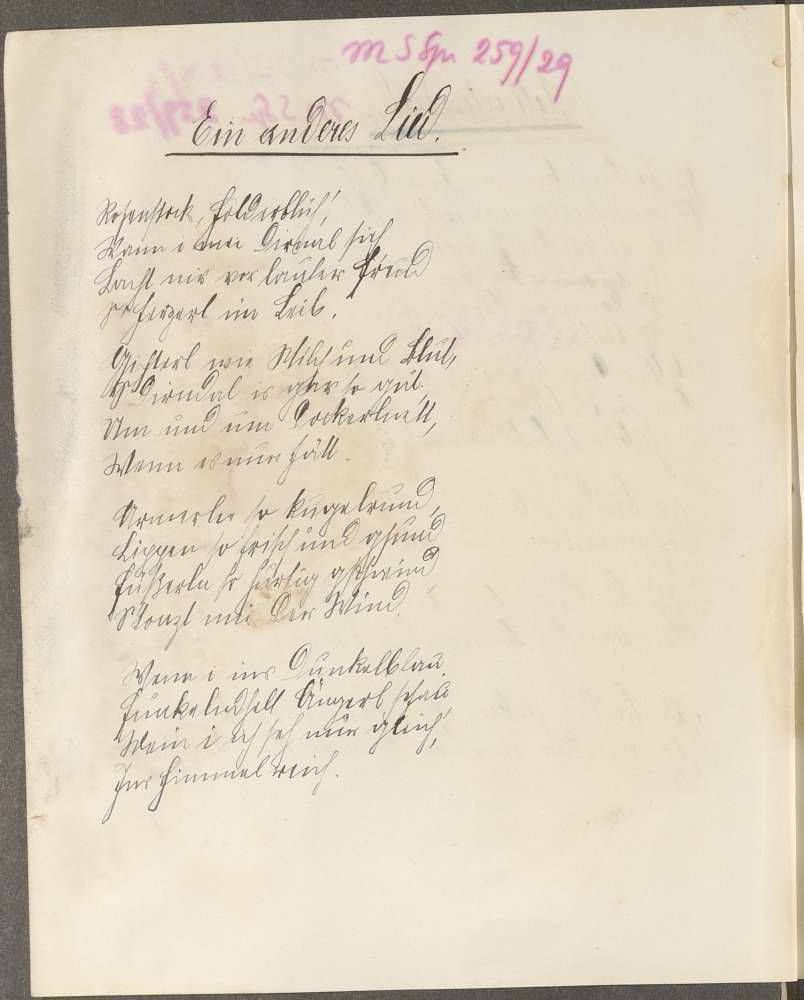 M S Gm 259/29
Ein anderes Lied.
Rosenstock, Holderblüh'!
Wann i mei Dirndl sieh
Lacht mir vor lauter Freud
S' Herzerl im Leib.
Gsichterl wie Milch und Blut,
S' Dirndal is gar so gut,
Um und um Dockerlnett,
Wenn es nur hätt.
Armerln so Kugelrund,
Lippen so frisch und gsund
Füßerln so hurtig gschwind
S' tanzt wie der Wind.
Wenn i ins Dunkelblau
Funkelndhell Äugerl schau
Mein i i seh nur gleich,
Ins Himmelreich.